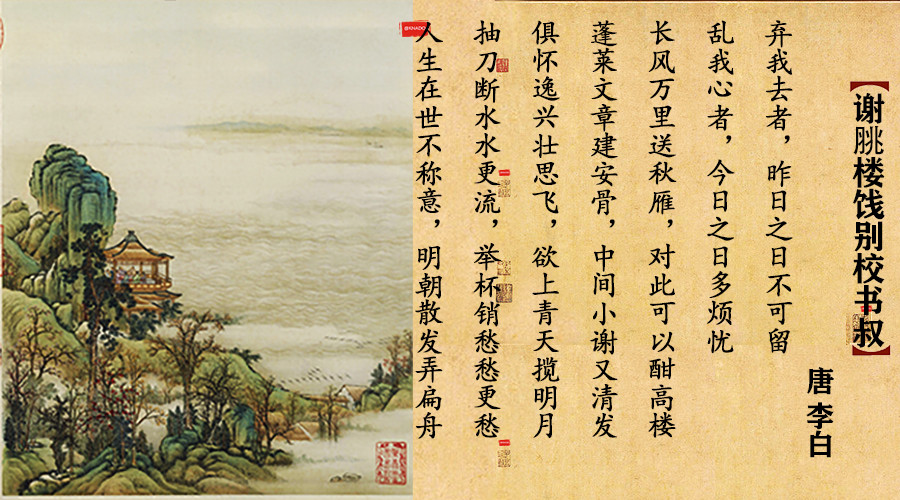 【谢朓楼饯别校书叔】
唐 李白
弃我去者，昨日之日不可留
乱我心者，今日之日多烦忧
长风万里送秋雁，对此可以酣高楼
蓬莱文章建安骨，中间小谢又清发
俱怀逸兴壮思飞，欲上青天揽明月
抽刀断水水更流，举杯销愁愁更愁
人生在世不称意，明朝散发弄扁舟